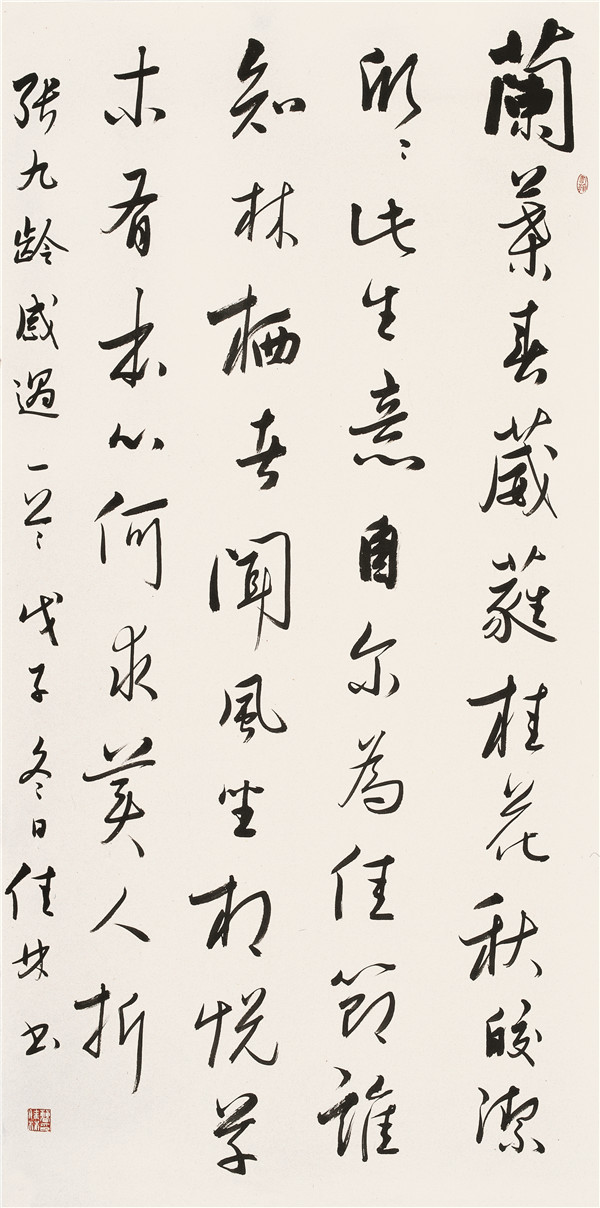 蘭葉春葳蕤桂花秋皎潔
欣〻此生意自尔為佳節誰
知林栖者聞風坐相悦草
木有本心何求美人折
張九齡感遇一首戊子冬日佳林书